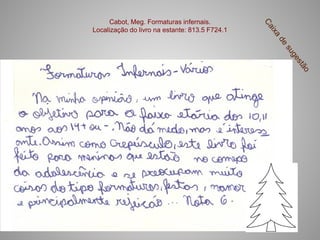 Cabot, Meg. Formaturas infernais.
Localização do livro na estante: 813.5 F724.1
Caixa de sugestão
Formaturas Infernais - Vários
Na minha opinião, um livro que atinge
o objetivo para a faixa etária dos 10, 11
anos aos 14 + ou -. Não dá medo, mas é interess
ante. Assim como Crepúsculo, este livro foi
feito para meninas que estão no começo
da adolescência e se preocupam muito
coisas do tipo formaturas, festas, namor
e principalmente rejeição ... Nota 6.